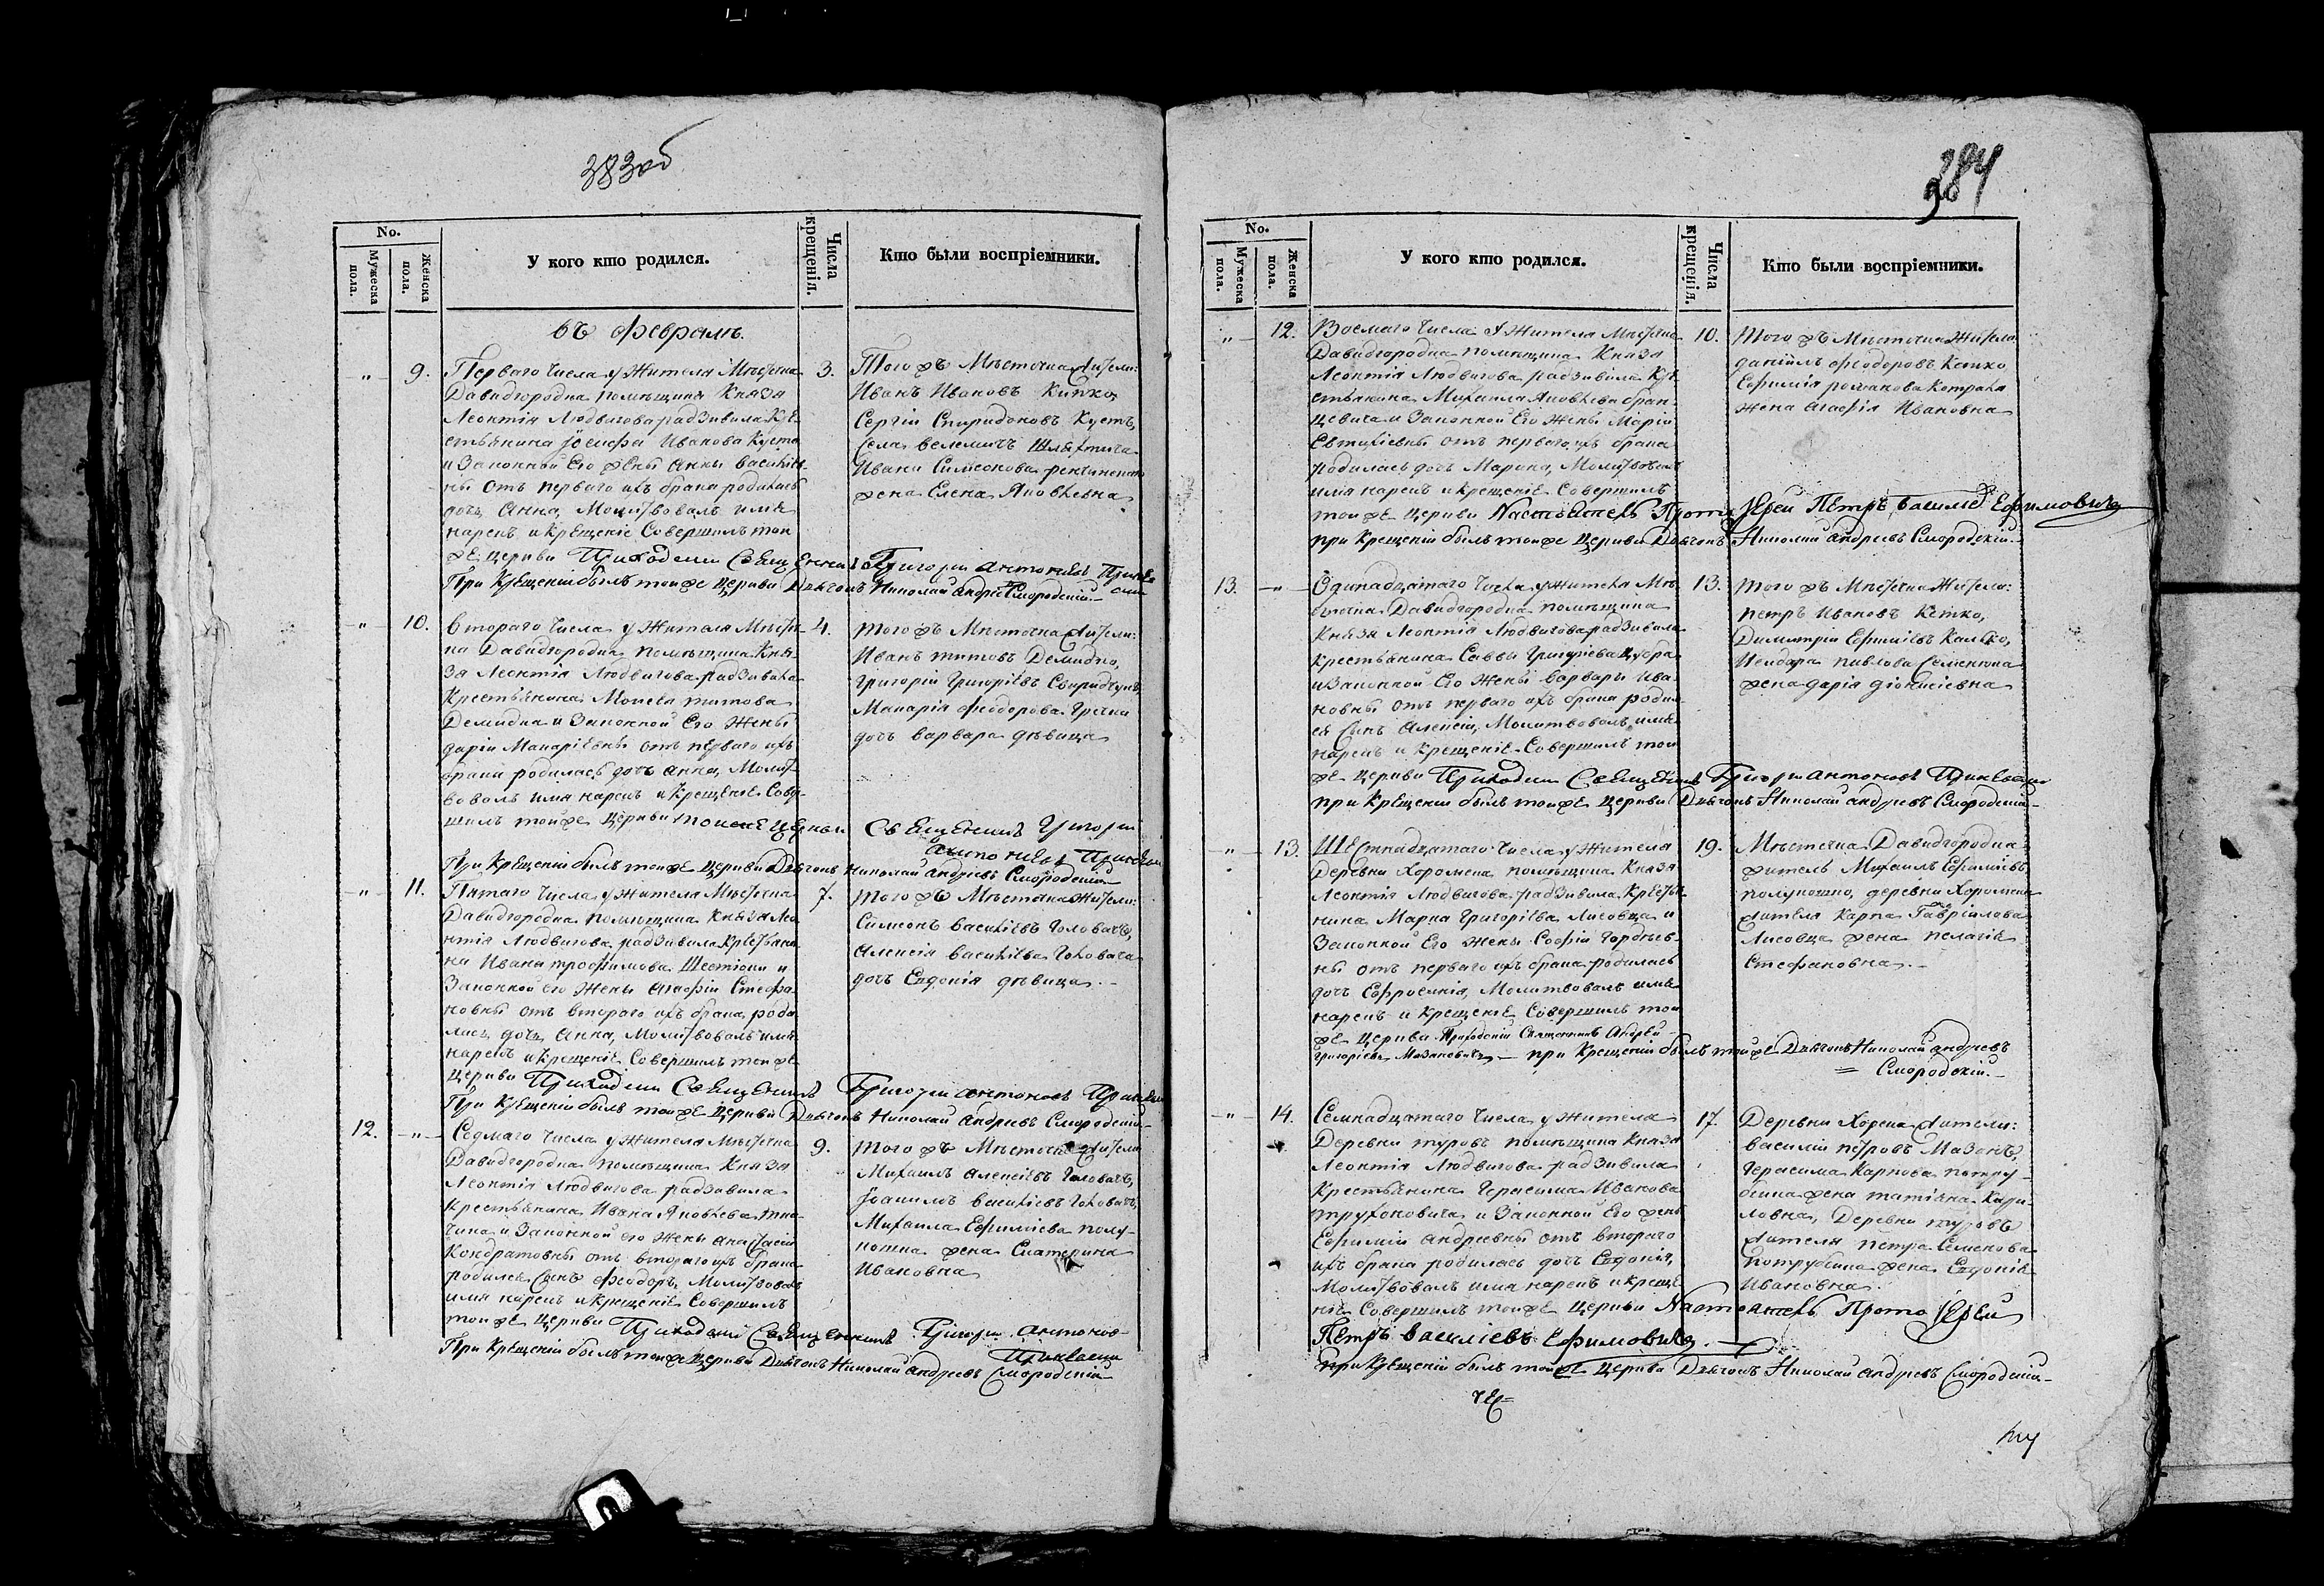 383об
No.
Мужеска пола.
Женска пола.
У кого кто родился.
Числа крещенія.
Кто были воспріемники.
въ Февралѣ.
„ 9. Перваго числа у жителя Мѣстечка
Давидгородка помѣщика Князя
Леонтія Людвигова радзивила кре
стьянина Іосифа Иванова Куста
и Законной Его жены Анны василіев
ны отъ перваго ихъ брака родилась
дочь Анна, Молитвовалъ имя
нарекъ и крещеніе Совершилъ той
же церкви Приходскій Священникъ Григорій Антоніевъ
При крещеніи былъ тойже Церкви Дьячокъ Николай андреевъ Смородскій
3. Того жъ Мѣстечка жители:
Иванъ Ивановъ Китко,
Сергій Спиридоновъ Кустъ,
Села велемичъ Шляхтича
Ивана Симеонова
жена Елена Яковлевна
„ 10. втораго числа у жителя Мѣстеч
ка Давидгородка помѣщика Кня
зя Леонтія Людвигова радзивила
крестьянина Моисея титова
Демидка и Законной Его жены
даріи Макаріевны отъ перваго ихъ
брака родилась дочь анна, Молит
вовалъ имя нарекъ и крещеніе Совер
шилъ тойже Церкви Священникъ Григорій
При крещеніи былъ тойже Церкви Дьячокъ Николай андреевъ Смородскій
4. того жъ Мѣстечка жители:
Иванъ титовъ Демидко,
григорій григоріевъ
Макарія Феодорова Гречки
дочь варвара дѣвица
„ 11. Пятаго числа у жителя Мѣстечка
Давидгородка помѣщика Князя Лео
нтія Людвигова радзивила крестьяни
на Ивана трофимова и
Законной его жены агафіи Стефа
новны отъ втораго ихъ брака роди
лась дочь Анна, Молитвовалъ имя
нарекъ и крещеніе Совершилъ тойже
Церкви Приходскій Священникъ Григорій антоновъ
При крещеніи былъ тойже Церкви Дьячокъ Николай андреевъ Смородскій
7. того жъ Мѣстечка жители:
Симеонъ василіевъ головачъ,
Алексія василіева головача
дочь Евдокія дѣвица. –
12. „ Седмаго числа у жителя Мѣстечка
Давидгородка помѣщика Князя
Леонтія Людвигова радзивила
крестьянина Ивана Яковлева
и Законной его жены анастасіи
Кондратовны отъ втораго ихъ брака
родился Сынъ Феодоръ, Молитвовалъ
имя нарекъ и крещеніе Совершилъ
тойже Церкви Приходскій Священникъ Григорій антонов
При крещеніи былъ тойже Церкви Дьячокъ Николай андреевъ Смородскій
9. того жъ Мѣстечка жители
Михаилъ алексіевъ головачъ,
василіевъ головачъ,
Михаила Ефиміева полу
кошка жена Екатерина
Ивановна
384
No.
Мужеска пола.
Женска пола.
У кого кто родился.
Числа крещенія.
Кто были воспріемники.
„ 12. Восмаго числа у жителя Мѣстечка
Давидгородка помѣщика Князя
Леонтія Людвигова радзивила кре
стьянина Михаила Яковлева
и Законной Его жены Маріи
Евтихіевны отъ перваго ихъ брака
родилась дочь Марина, Молитвовалъ
имя нарекъ и крещеніе Совершилъ
тойже Церкви Настоятель Прото Іерей Петръ василіев Ефимовичъ
при крещеніи былъ тойже Церкви Дьячокъ Николай андреевъ Смородскій
10. того жъ Мѣстечка жители
даніилъ Феодоровъ Китко
Ефимія романова
жена агафія Ивановна
13. „ Одинадцатаго числа у жителя Мѣ
стечка Давидгородка помѣщика
Князя Леонтія Людвигова радзивила
крестьянина Саввы григоріева
и Законной Его жены варвары ива
новны отъ перваго ихъ брака роди
ся Сынъ алексій, Молитвовалъ, имя
нарекъ и крещеніе Совершилъ той
же Церкви Приходскій Священникъ Григорій антоновъ
при крещеніи былъ тойже Церкви Дьячокъ Николай андреевъ Смородскій
13. того жъ Мѣстечка жители:
петръ Ивановъ Китко,
Димитрій Ефиміевъ
павлова Семенюка
жена дарія діонисіевна
„ 13. Шестнадцатаго числа у жителя
Деревни Хоромска помѣщика Князя
Леонтія Людвигова радзивила крестья
нина Марка григоріева Лисовца и
Законной Его жены Софіи гордѣев
ны отъ перваго ихъ брака родилась
дочь Ефросинія, Молитвовалъ имя
нарекъ и крещеніе Совершилъ той
же Церкви Приходскій Священникъ Андрей
Григоріевъ – при крещеніи былъ тойже Дьячокъ Николай андреевъ
Смородскій. –
19. Мѣстечка Давидгородка
житель Михаилъ Ефиміевъ
полукошко, деревни Хоромска
жителя Карпа Гавріилова
Лисовца жена пелагія
Стефановна. –
„ 14. Семнадцатаго числа у жителя
Деревни туровъ помѣщика Князя
Леонтія Людвигова радзивила
крестьянина герасима Иванова
труханович и Законной Его жены
Ефиміи андреевны отъ втораго
ихъ брака родилась дочь Евдокія,
Молитвовалъ имя нарекъ и креще
ніе Совершилъ тойже Церкви Настоятель Прото Іерей
Петръ василіевъ Ефимовичъ. –
при крещеніи былъ тойже Церкви Дьячокъ Николай андреевъ Смородскій –
17. Деревни Хорска жители:
василій петровъ
герасима Карпова
жена татіана
ловна, Деревни туровъ
жителя петра Семенова
жена Евдокія
Ивановна.